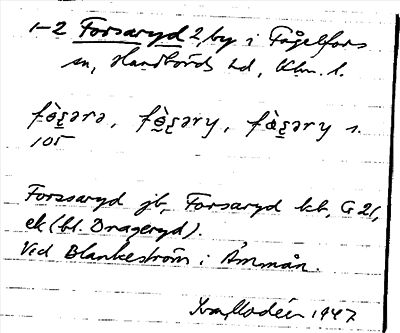 1-2 Forsaryd 2, by i Fågelfors
sn, Handbörds hd, Klm. l.
fò̱ʂərə, fò̱ʂəry, fà̱ʂəry s.
105
Forssaryd jb, Forsaryd kb, G 21,
ek (bl. Drageryd).
Vid Blankeström i Åmmån.
Ivar Modéer 1947